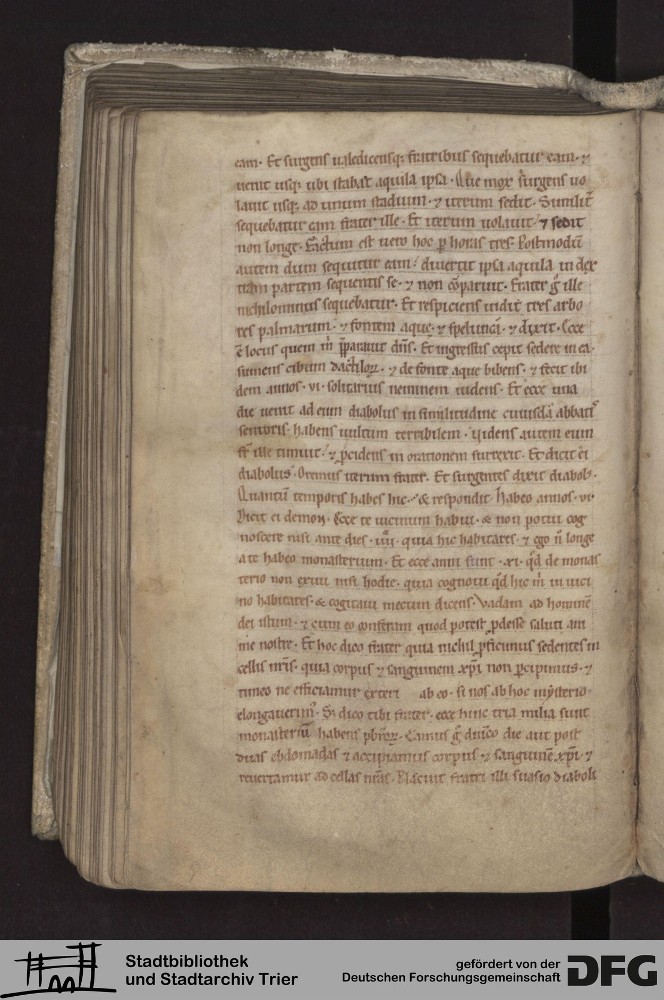 eam. Et surgens ualedicensq; fratribus sequebatur eam. ⁊
uenit usq; ubi stabat aquila ipsa. Que mox surgens uo
lauit usq; ad unum stadium. ⁊ iterum sedit. Similit̄
sequebatur eam frater ille. Et iterum uolauit / ⁊ sedit
non longe. Factum est uero hoc ꝑ horas tres. Postmodū
autem dum sequitur eam / diuertit ipsa aquila in dex
tram partem sequentis se. ⁊ non cōparuit. Frater g̃ ille
nichilominus sequebatur. Et respiciens uidit tres arbo
res palmarum. ⁊ fontem aque. ⁊ speluncā. ⁊ dixit. Ecce
ē locus quem m̄ p̄parauit dn̄s. Et ingressus cepit sedere in ea.
sumens cibum dactiloꝝ. ⁊ de fonte aque bibens. ⁊ fecit ibi
dem annos. vi. solitarius neminem uidens. Et ecce una
die uenit ad eum diabolus in similitudine cuiusdā abbatis
senioris. habens uultum terribilem. Uidens autem eum
fr̄ ille timuit. ⁊ ꝓcidens in orationem surrexit. Et dicit ei
diabolus. Oremus iterum frater. Et surgentes dixit diabol⁹.
Quantū temporis habes hic. & respondit. Habeo annos. vi.
Dicit ei demon. Ecce te uicinum habui. & non potui cog
noscere nisi ante dies. iiii. quia hic habitares. ⁊ ego n̄ longe
a te habeo monasterium. Et ecce anni sunt. xi. qd̄ de monas
terio non exiui nisi hodie. quia cognoui qd̄ hic m̄ in uici
no habitares. & cogitaui mecum dicens. Vadam ad hominē
dei istum. ⁊ cum eo conferam quod potest ꝓdesse saluti ani
me nostre. Et hoc dico frater quia nichil ꝓficimus sedentes in
cellis nr̄is. quia corpus ⁊ sanguinem xp̄i non ꝑcipimus. ⁊
timeo ne efficiamur exteri ab eo. si nos ab hoc mysterio
elongauerim⁹. S; dico tibi frater. ecce hinc tria milia sunt
monasteriū habens pb̄roꝝ. Eamus g̃ dn̄ico die aut post
duas ebdomadas ⁊ accipiamus corpus ⁊ sanguinē xp̄i. ⁊
reuertamur ad cellas nr̄as. Placuit fratri illi suasio diaboli
Stadtbibliothek
und Stadtarchiv Trier
gefördert von der
Deutschen Forschungsgemeinschaft
DFG